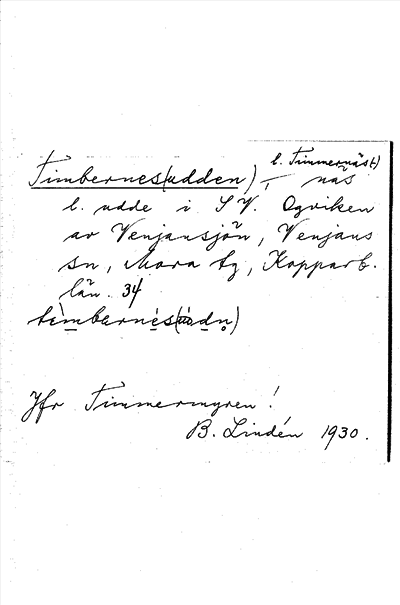 l. Timmernäs(t)
Timbernes(udden), – näs
l. udde i S V. Ogviken
av Venjansjön, Venjans
sn, Mora tg, Kopparb.
län. 34
tìmbərnés(ùdn̥)
Jfr Timmermyren!
B. Lindén 1930.